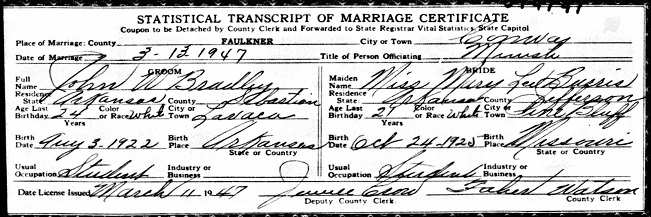 STATISTICAL TRANSCRIPT OF MARRIAGE CERTIFICATE
Coupon to be Detached by County Clerk and Forwarded to State Registrar Vital Statistics, State Capitol
Place of Marriage: County FAULKNER City or Town Conway
Date of Marriage 3-13-1947 Title of Person Officiating
GROOM BRIDE
Full Name John W Bradley Maiden Name Miss Mary Lee Burris
Residence State Arkansas County Sebastian Residence State Arkansas County Jefferson
Age Last Birthday 24 Years Color or Race White City or Town Lavaca Age Last Birthday 21 Years Color or Race White City or Town Pine Bluff
Birth Date Aug 3-1922 Birth Place Arkansas State or Country Birth Date Oct 24-1925 Birth Place Missouri State or Country
Usual Occupation Student Industry or Business Usual Occupation Student Industry or Business
Date License Issued March 11 1947 Deputy County Clerk. Watson County Clerk.